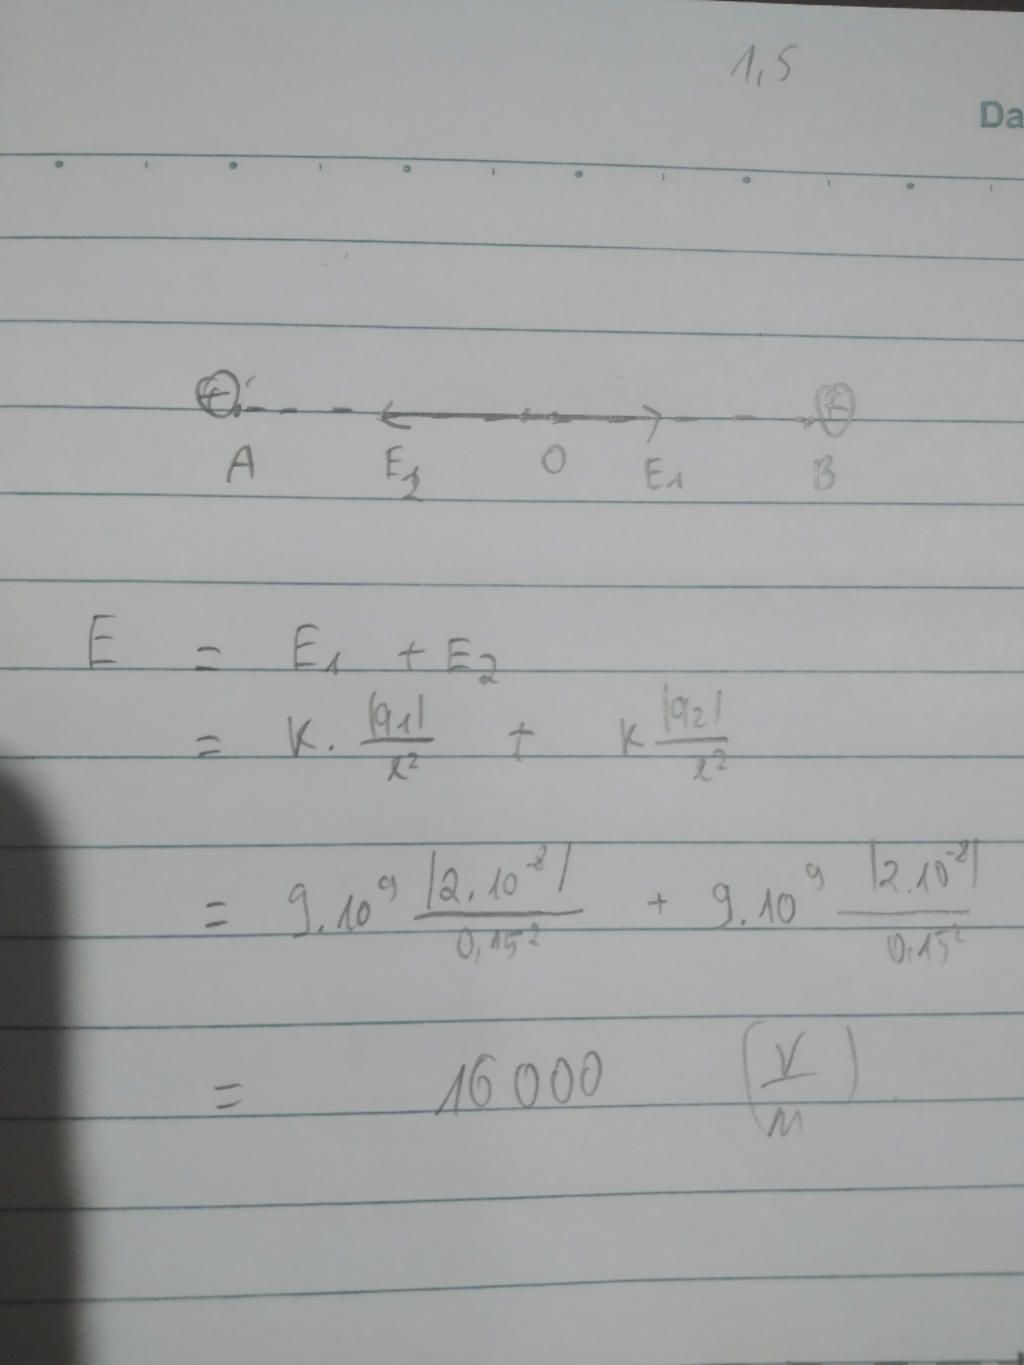 1,5
Da
+ +
A E2 O E1 B
E = E1 + E2
= K. |q1|/r² + K |q2|/r²
= 9.10⁹ |2.10⁻⁸|/0,15² + 9.10⁹ |2.10⁻⁸|/0,15²
= 16000 (V/m)